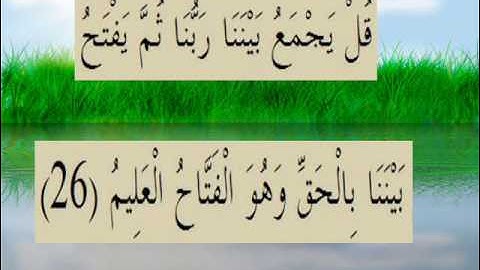 قُلْ يَجْمَعُ بَيْنَنَا رَبُّنَا ثُمَّ يَفْتَحُ
بَيْنَنَا بِالْحَقِّ وَهُوَ الْفَتَّاحُ الْعَلِيمُ (26)